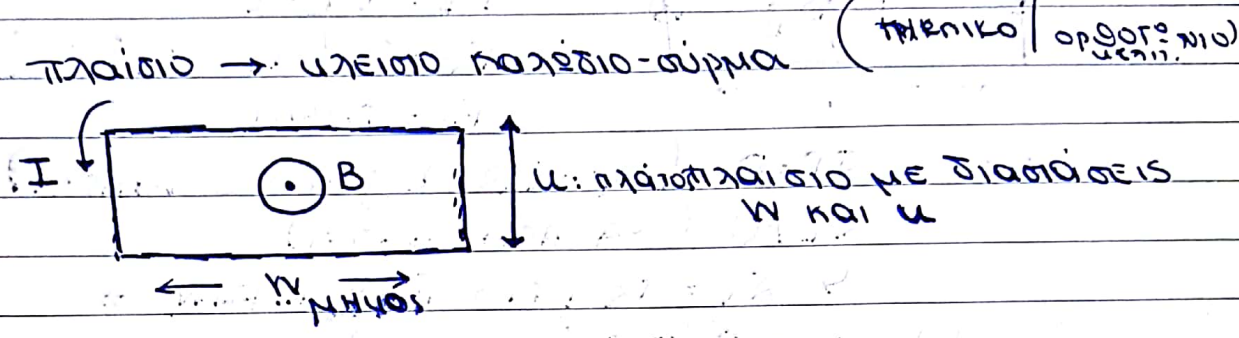 πλαίσιο → κλειστο καλώδιο-σύρμα
I
B
u: πλάτος πλαίσιο με διαστάσεις
W και u
← W →
μήκος